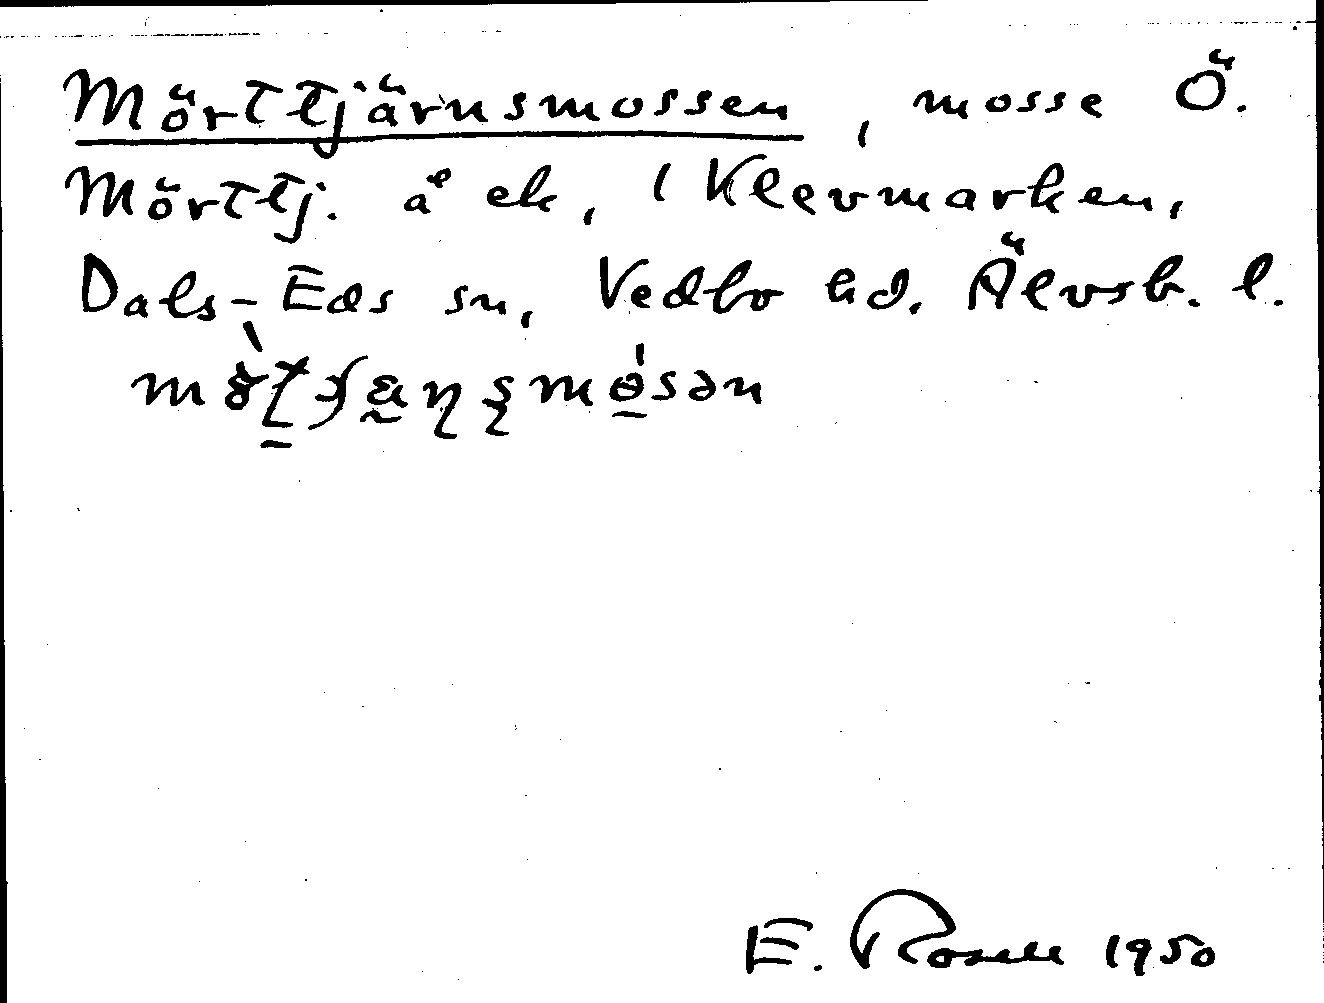 Mörttjärnsmossen, mosse Ö.
Mörttj. å ek, i Klevmarken,
Dals-Eds sn, Vedbo hd. Älvsb. l.
E. Rosell 1950